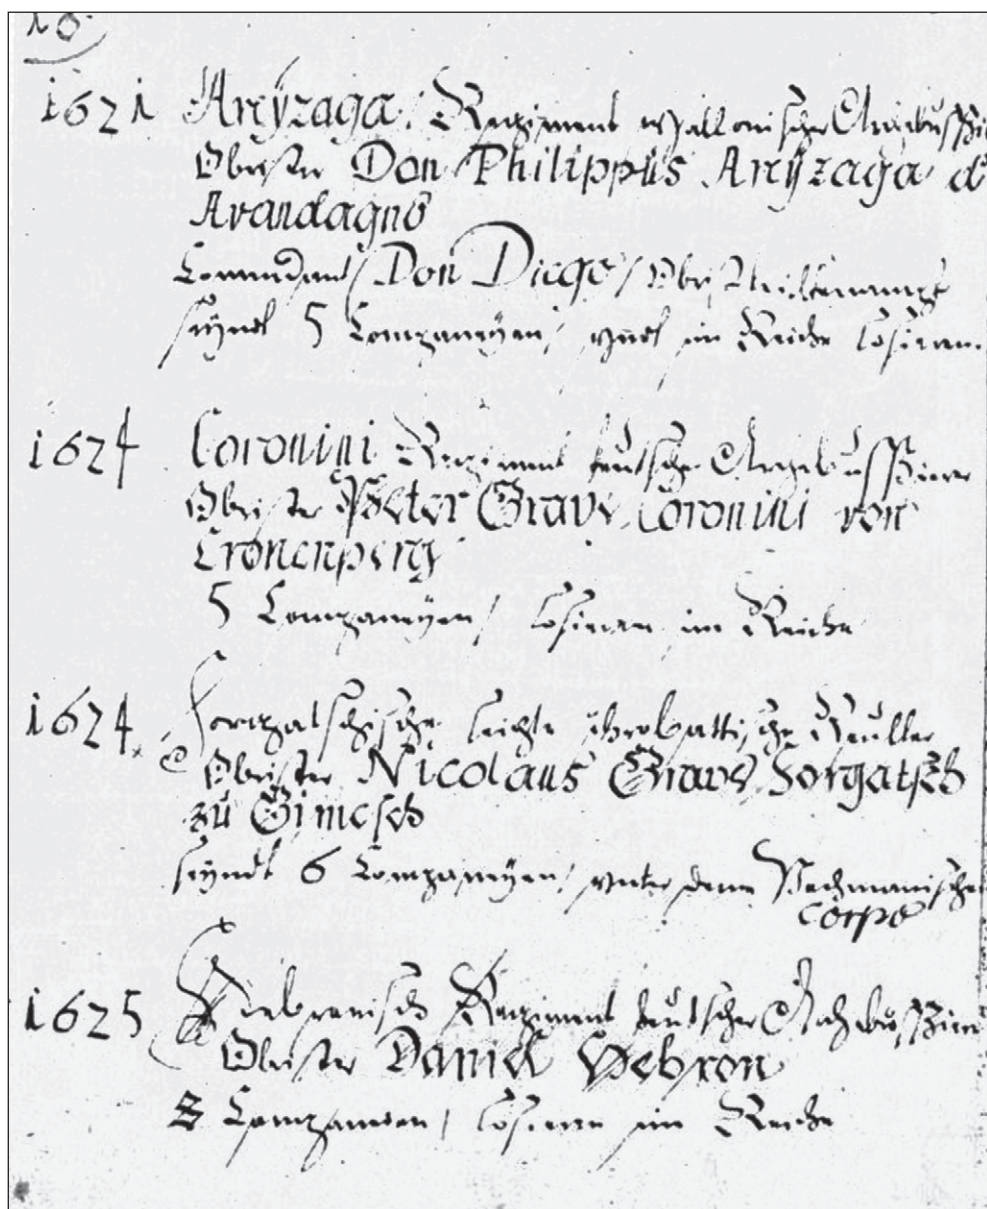 10.
1621 Arrÿzaga: Regiment wallonischer Arcebussir
Obrister Don Philippüs Arrÿzaga d
Avandagno
Comendant / Don Diego / Obrist Leittenampt
seÿndt 5 Compagneÿen / vndt im Reiche losiren.
1624 Coronini Regiment teutscher Arcebussirer
Obrister Peter Grave Coronini von
Cronenperg
5 Compagneÿen / losiren im Reiche
1624. Forgatschische leichte chrobattische Reütter
Obrister Nicolaus Grave Forgatsch
zü Gimesch
seÿndt 6 Compagneÿen / vnter deme Pechmanischen
Corpo
1625 Hebronisch Regiment teutscher Archibussirer
Obrister Daniel Hebron
8 Compagneien / losiren im Reiche